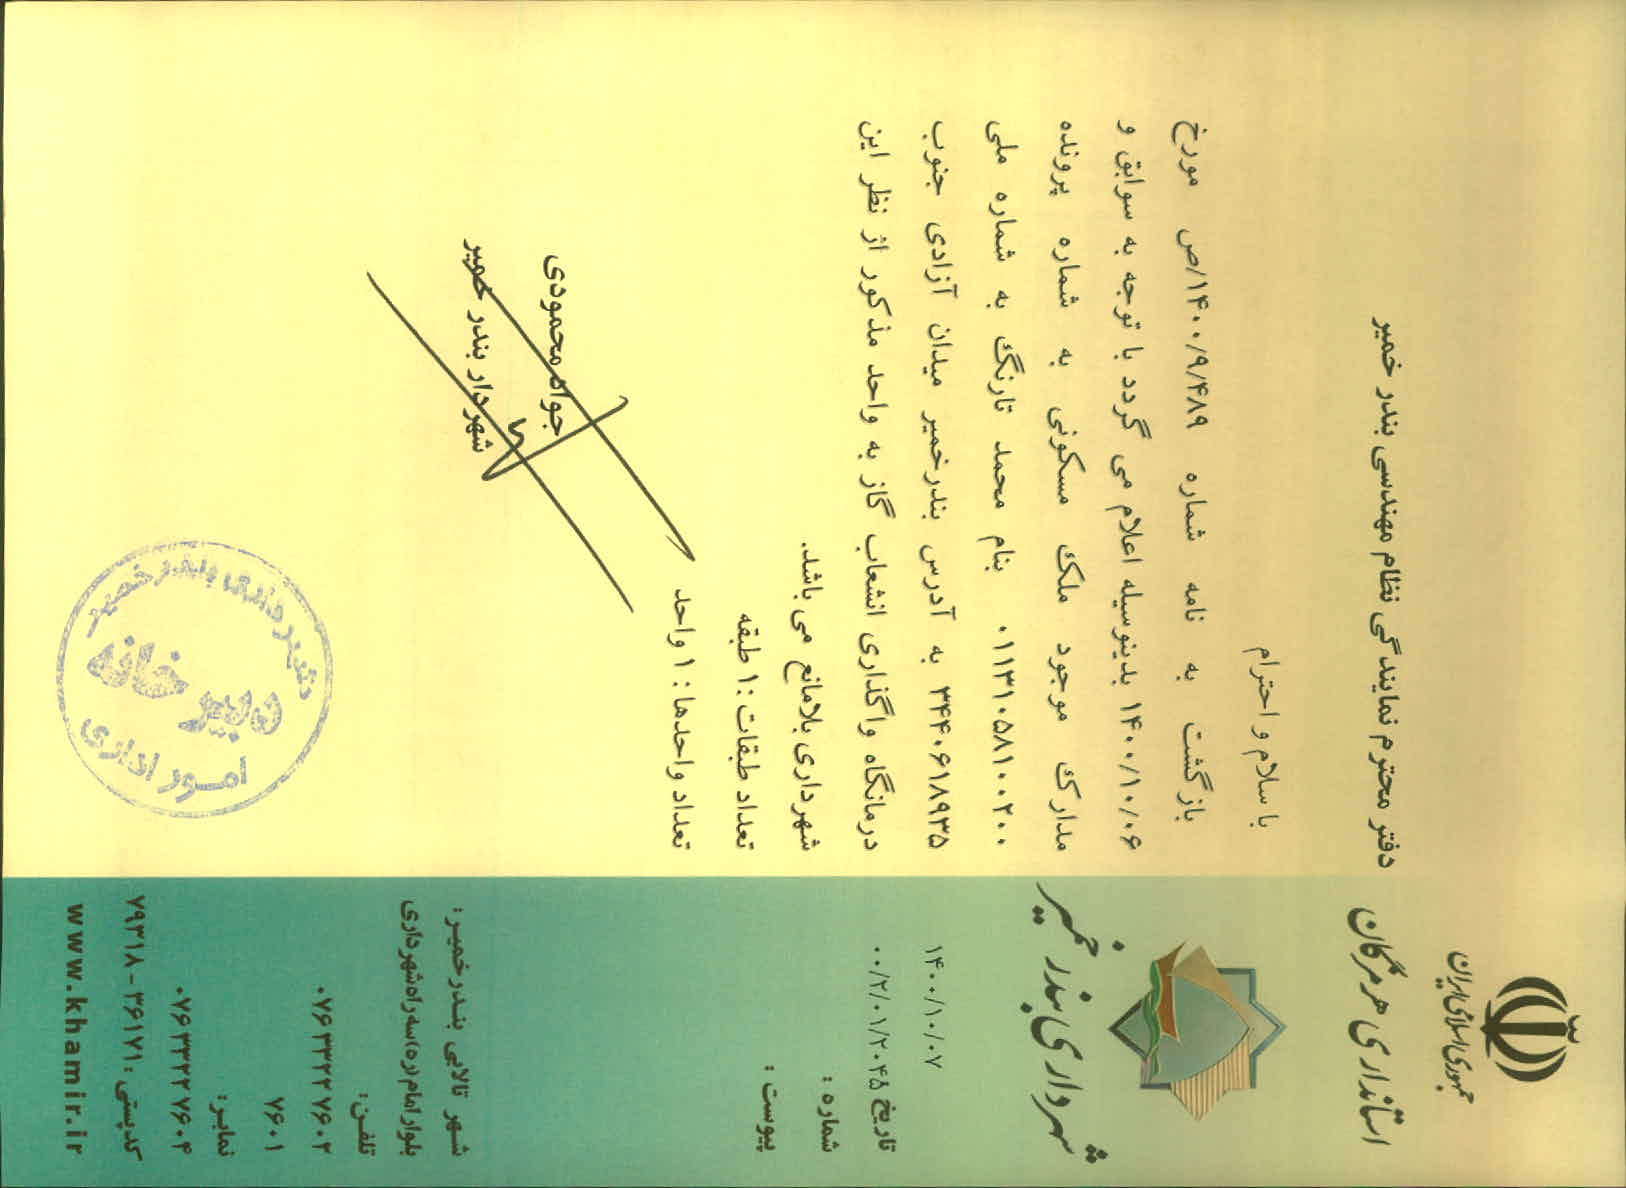 جمهوری اسلامی ایران
استانداری هرمزگان
شهرداری بندر خمیر
۱۴۰۰/۱۰/۰۷
تاریخ ۰۰/۲/۰۱/۲۰۴۵
شماره :
پیوست :
دفتر محترم نمایندگی نظام مهندسی بندر خمیر
با سلام و احترام
بازگشت به نامه شماره ۱۴۰۰/۹/۴۸۹/ص مورخ
۱۴۰۰/۱۰/۰۶ بدینوسیله اعلام می گردد با توجه به سوابق و
مدارک موجود ملک مسکونی به شماره پرونده
۰۱۱۳۱۰۵۸۱۰۰۲۰۰ بنام محمد تارنگ به شماره ملی
۳۴۴۰۶۱۸۹۳۵ به آدرس بندرخمیر میدان آزادی جنوب
درمانگاه واگذاری انشعاب گاز به واحد مذکور از نظر این
شهرداری بلامانع می باشد.
تعداد طبقات :۱ طبقه
تعداد واحدها : ۱ واحد
جواد محمودی
شهردار بندر خمیر
شهرداری بندرخمیر
دبیرخانه
امور اداری
شهر تالابی بندرخمیر:
بلوار امام(ره)سه راه شهرداری
تلفن:
۰۷۶۳۳۲۲۷۶۰۲
۷۶۰۱
نمابر:
۰۷۶۳۳۲۲۷۶۰۴
کدپستی : ۳۶۱۷۱ - ۷۹۳۱۸
www.khamir.ir